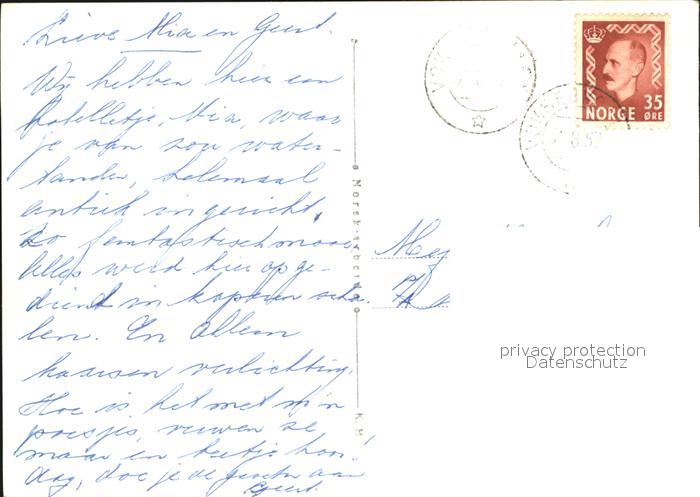 Lieve Mia en Geert.
Wij hebben hier een
hotelletje, Mia, waar
je van zou water-
tanden, helemaal
antiek ingericht,
zo fantastisch mooi
Alles werd hier opge-
diend in koperen scha-
len. En Alleen
kaarsen verlichting.
Hoe is het met m'n
poesjes, verwen ze
maar een beetje hoor!
dag, doe je de groeten aan
Geert.
NORGE 35
ØRE
Mej
privacy protection
Datenschutz